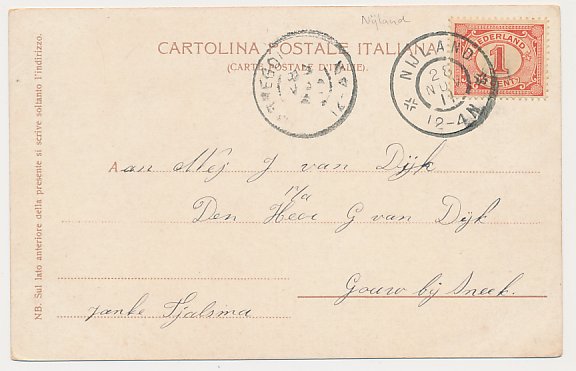 Nijland
CARTOLINA POSTALE ITALIANA
(CARTE POSTALE D'ITALIE)
NEDERLAND
1
CENT
NIJLAND
28
NOV
11
12-4N
12-4N
Aan Mej J van Dijk
p/a
Den Heer G van Dijk
Gouw bij Sneek.
Janke Tjalsma
NB. Sul lato anteriore della presente si scrive soltanto l'indirizzo.